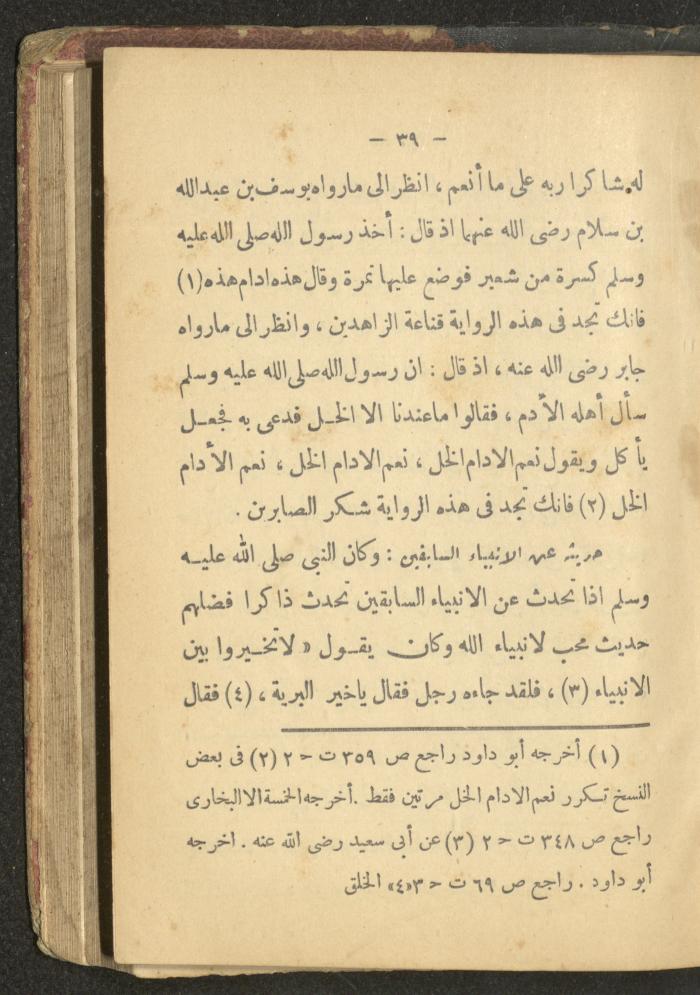 — ٣٩ —
له شاكرا ربه على ما أنعم ، انظر الى مارواه يوسف بن عبدالله
بن سلام رضى الله عنهما اذ قال : أخذ رسول الله صلى الله عليه
وسلم كسرة من شعير فوضع عليها تمرة وقال هذه ادام هذه (١)
فانك تجد فى هذه الرواية قناعة الزاهدين ، وانظر الى مارواه
جابر رضى الله عنه ، اذ قال : ان رسول الله صلى الله عليه وسلم
سأل أهله الأدم ، فقالوا ماعندنا الا الخل فدعى به فجعل
يأكل ويقول نعم الادام الخل ، نعم الادام الخل ، نعم الأدام
الخل (٢) فانك تجد فى هذه الرواية شكر الصابرين .
حديثه عن الانبياء السابقين : وكان النبي صلى الله عليه
وسلم اذا تحدث عن الانبياء السابقين تحدث ذاكرا فضلهم
حديث محب لانبياء الله وكان يقول « لاتخيروا بين
الانبياء (٣) ، فلقد جاءه رجل فقال ياخير البرية ، (٤) فقال
(١) أخرجه أبو داود راجع ص ٣٥٩ ت ح ٢ (٢) فى بعض
النسخ تكرر نعم الادام الخل مرتين فقط . أخرجه الخمسة الا البخارى
راجع ص ٣٤٨ ت ح ٢ (٣) عن أبى سعيد رضى الله عنه . اخرجه
أبو داود . راجع ص ٦٩ ت ح ٣ «٤» الخلق